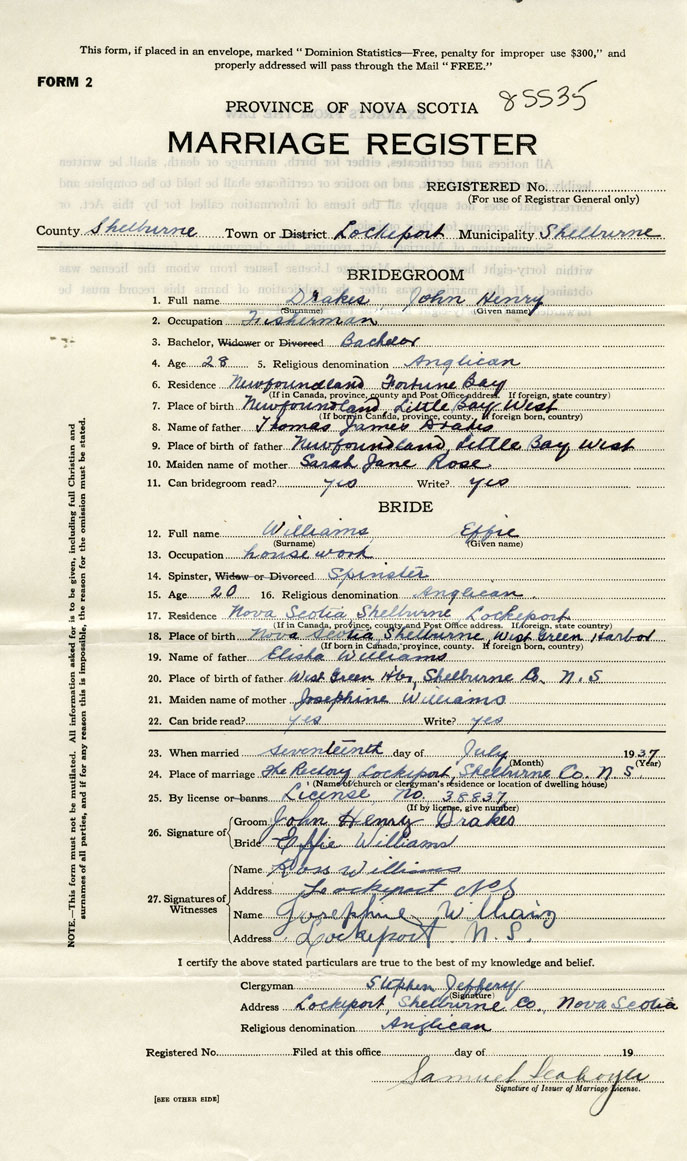 This form, if placed in an envelope, marked "Dominion Statistics—Free, penalty for improper use $300," and
properly addressed will pass through the Mail "FREE."
FORM 2
85535
PROVINCE OF NOVA SCOTIA
MARRIAGE REGISTER
REGISTERED No.
(For use of Registrar General only)
County Shelburne Town or District Lockeport Municipality Shelburne
BRIDEGROOM
1. Full name Drakes John Henry
(Surname) (Given name)
2. Occupation Fisherman
3. Bachelor, Widower or Divorced Bachelor
4. Age 28 5. Religious denomination Anglican
6. Residence Newfoundland Fortune Bay
(If in Canada, province, county and Post Office address. If foreign, state country)
7. Place of birth Newfoundland, Little Bay West
(If born in Canada, province, county. If foreign born, country)
8. Name of father Thomas James Drakes
9. Place of birth of father Newfoundland, Little Bay West
10. Maiden name of mother Sarah Jane Rose
11. Can bridegroom read? yes Write? yes
BRIDE
12. Full name Williams Effie
(Surname) (Given name)
13. Occupation housework
14. Spinster, Widow or Divorced Spinster
15. Age 20 16. Religious denomination Anglican
17. Residence Nova Scotia Shelburne Lockeport
(If in Canada, province, county and Post Office address. If foreign, state country)
18. Place of birth Nova Scotia, Shelburne, West Green Harbor
(If born in Canada, province, county. If foreign born, country)
19. Name of father Elisha Williams
20. Place of birth of father West Green Hbr, Shelburne Co. N.S
21. Maiden name of mother Josephine Williams
22. Can bride read? yes Write? yes
23. When married seventeenth day of July 1937
(Month) (Year)
24. Place of marriage The Rectory Lockeport, Shelburne Co. N.S.
(Name of church or clergyman's residence or location of dwelling house)
25. By license or banns License No. 38837
(If by license, give number)
26. Signature of Groom John Henry Drakes
Bride Effie Williams
27. Signatures of Witnesses
Name Ross Williams
Address Lockeport NS
Name Josephine Williams
Address Lockeport N.S.
I certify the above stated particulars are true to the best of my knowledge and belief.
Clergyman Stephen Jeffery
(Signature)
Address Lockeport, Shelburne Co., Nova Scotia
Religious denomination Anglican
Registered No. Filed at this office day of 19
Samuel
Signature of Issuer of Marriage License.
[SEE OTHER SIDE]
NOTE.—This form must not be mutilated. All information asked for is to be given, including full Christian and
surnames of all parties, and if for any reason this is impossible, the reason for the omission must be stated.